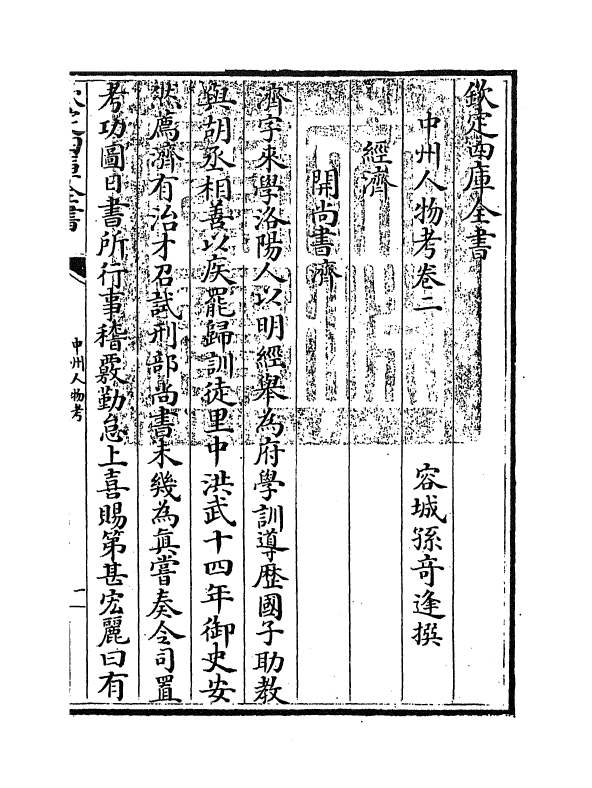 欽定四庫全書
中州人物考卷二
容城孫竒逢撰
經濟
開尚書濟
濟字來學洛陽人以明經舉為府學訓導歴國子助教
與胡丞相善以疾罷歸訓徒里中洪武十四年御史安
然薦濟有治才召試刑部尚書未幾為真嘗奏令司置
考功圖日書所行事稽覈勤怠上喜賜第甚宏麗曰有
欽定四庫全書
中州人物考
一